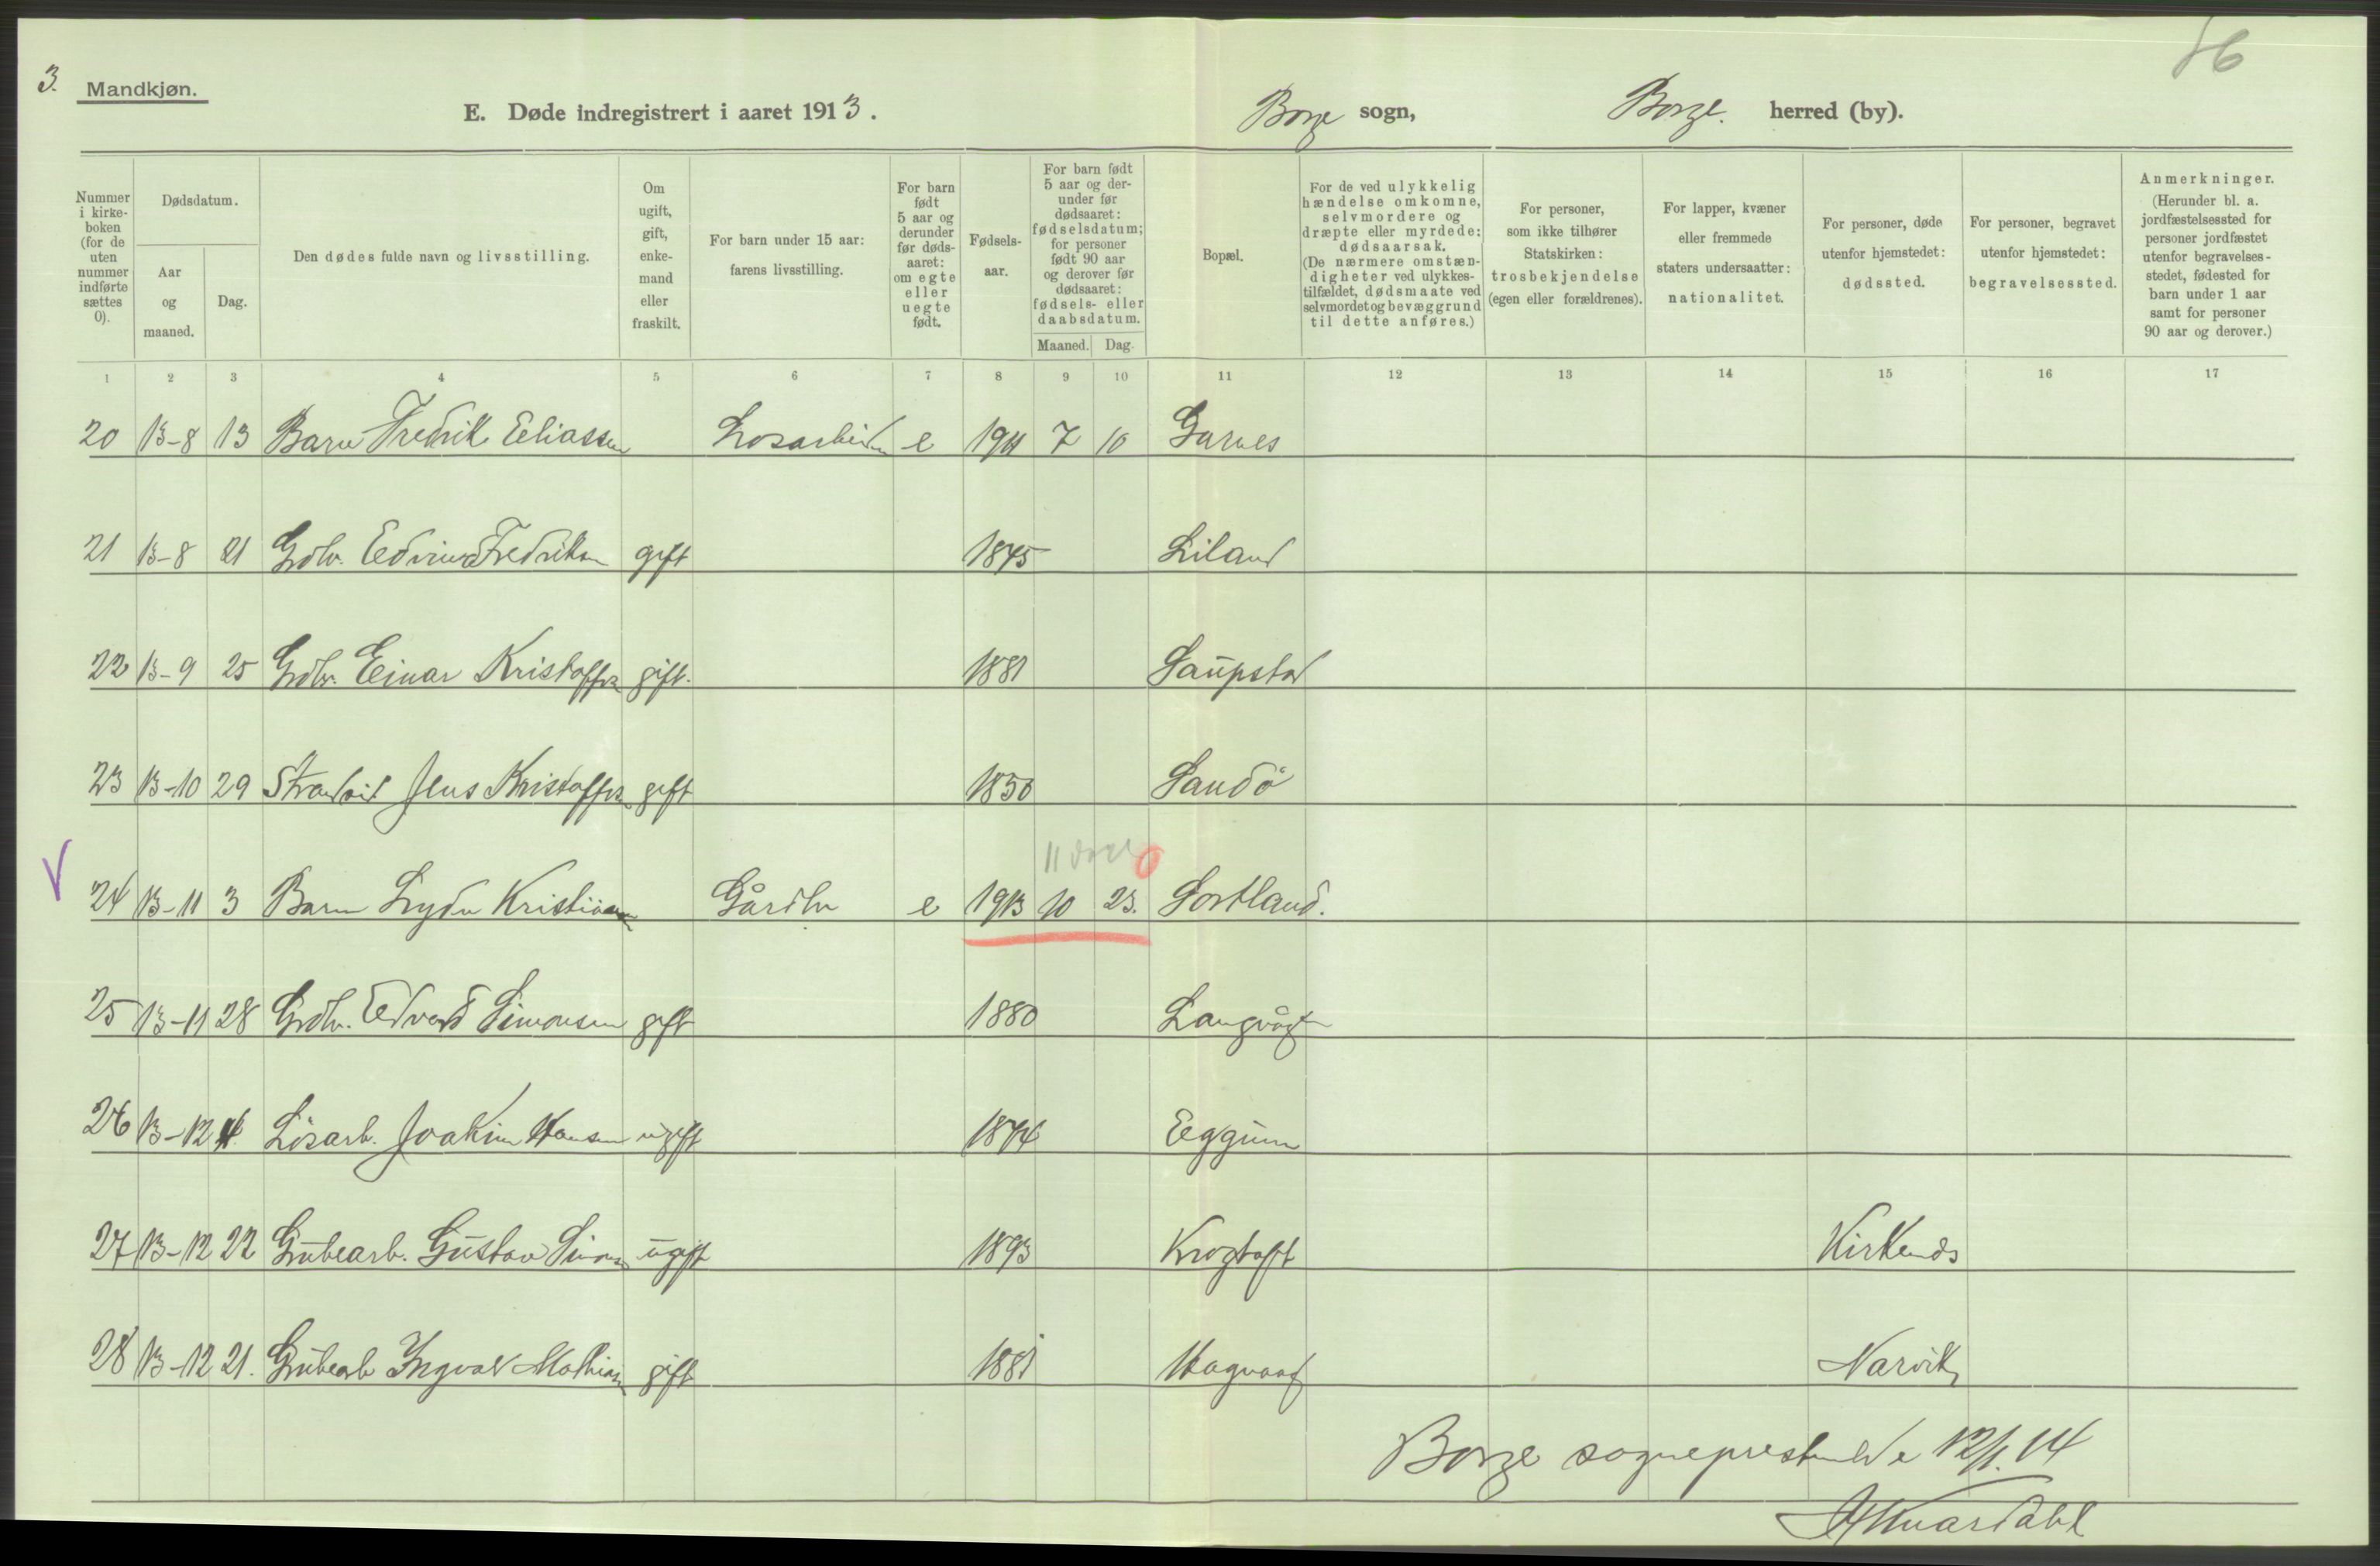 3.
Mandkjøn.
E. Døde indregistrert i aaret 1913.
Borge sogn,
Borge. herred (by).
Nummer i kirke- boken (for de uten nummer indførte sættes 0).
Dødsdatum.
Aar og maaned.
Dag.
Den dødes fulde navn og livsstilling.
Om ugift, gift, enke- mand eller fraskilt.
For barn under 15 aar: farens livsstilling.
For barn født 5 aar og derunder før døds- aaret: om egte eller uegte født.
Fødsels- aar.
For barn født 5 aar og der- under før dødsaaret: fødselsdatum; for personer født 90 aar og derover før dødsaaret: fødsels- eller daabsdatum.
Maaned. Dag.
Bopæl.
For de ved ulykkelig hændelse omkomne, selvmordere og dræpte eller myrdede: dødsaarsak. (De nærmere omstæn- digheter ved ulykkes- tilfældet, dødsmaate ved selvmordet og bevæggrund til dette anføres.)
For personer, som ikke tilhører Statskirken: trosbekjendelse (egen eller forældrenes).
For lapper, kvæner eller fremmede staters undersaatter: nationalitet.
For personer, døde utenfor hjemstedet: dødssted.
For personer, begravet utenfor hjemstedet: begravelsessted.
Anmerkninger. (Herunder bl. a. jordfæstelsessted for personer jordfæstet utenfor begravelses- stedet, fødested for barn under 1 aar samt for personer 90 aar og derover.)
1 2 3 4 5 6 7 8 9 10 11 12 13 14 15 16 17
20 13-8 13 Barn Fredrik Eliassen Losarbeider e 1911 7 10 Garnes
21 13-8 21 Grdbr. Edvind Fredriksen gift 1845 Liland
22 13-9 25 Grdbr. Einar Kristoffersen gift. 1881 Saupstad
23 13-10 29 Strandsid Jens Kristoffersen gift 1850 Sandö
11 dage 0
V 24 13-11 3 Barn Lyder Kristiansen Gårdbr e 1913 10 23. Sortland.
25 13-11 28 Grdbr. Edvard Simonsen gift 1880 Langvågen
26 13-12 Lösarb. Joakim Hansen ugift 1874 Eggum
27 13-12 22 Grubearb. Gustav Simonsen ugift 1893 Krogtoft Kirkenes
28 13-12 21. Grubearb Ingvald Mathiasen gift 1881 Narvik
Borge sogneprestembede 12/1. 14